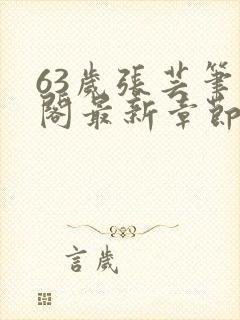 63歲張芸筆
閣最新章節
言歲